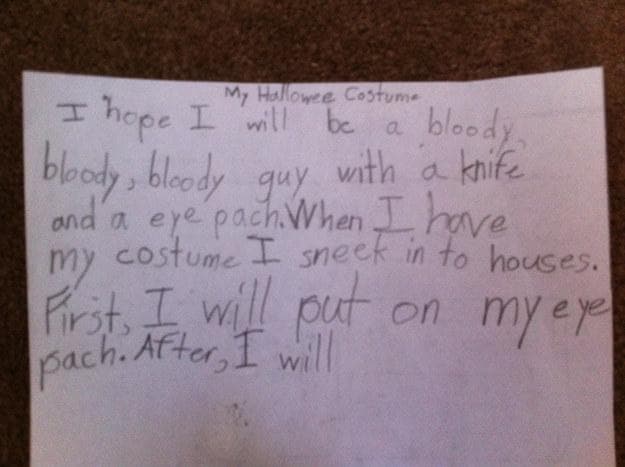 My Hallowee Costume
I hope I will be a bloody,
bloody, bloody guy with a knife
and a eye pach. When I have
my costume I sneek in to houses.
First, I will put on my eye
pach. After, I will